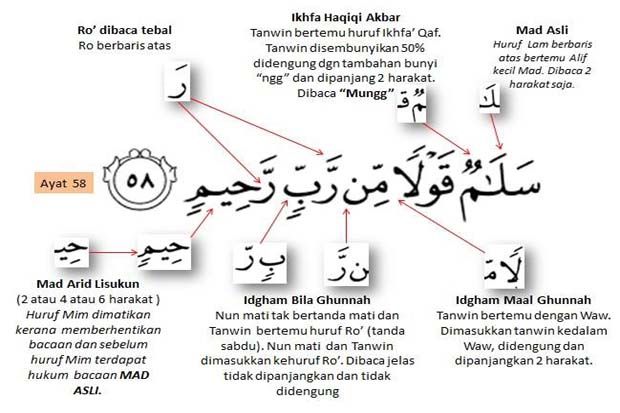 Ro’ dibaca tebal
Ro berbaris atas
رَ
Ikhfa Haqiqi Akbar
Tanwin bertemu huruf Ikhfa’ Qaf.
Tanwin disembunyikan 50%
didengung dgn tambahan bunyi
“ngg” dan dipanjang 2 harakat.
Dibaca “Mungg”
مٌ ق
Mad Asli
Huruf Lam berbaris
atas bertemu Alif
kecil Mad. Dibaca 2
harakat saja.
لَٰ
Ayat 58
سَلَـٰمٌ قَوْلًا مِّن رَّبٍّ رَّحِيمٍ ٥٨
حِيمٍ
حِيـ
Mad Arid Lisukun
(2 atau 4 atau 6 harakat )
Huruf Mim dimatikan
kerana memberhentikan
bacaan dan sebelum
huruf Mim terdapat
hukum bacaan MAD
ASLI.
بٍ رَّ
ن رَّ
Idgham Bila Ghunnah
Nun mati tak bertanda mati dan
Tanwin bertemu huruf Ro’ (tanda
sabdu). Nun mati dan Tanwin
dimasukkan kehuruf Ro’. Dibaca jelas
tidak dipanjangkan dan tidak
didengung
لًا مِّ
Idgham Maal Ghunnah
Tanwin bertemu dengan Waw.
Dimasukkan tanwin kedalam
Waw, didengung dan
dipanjangkan 2 harakat.